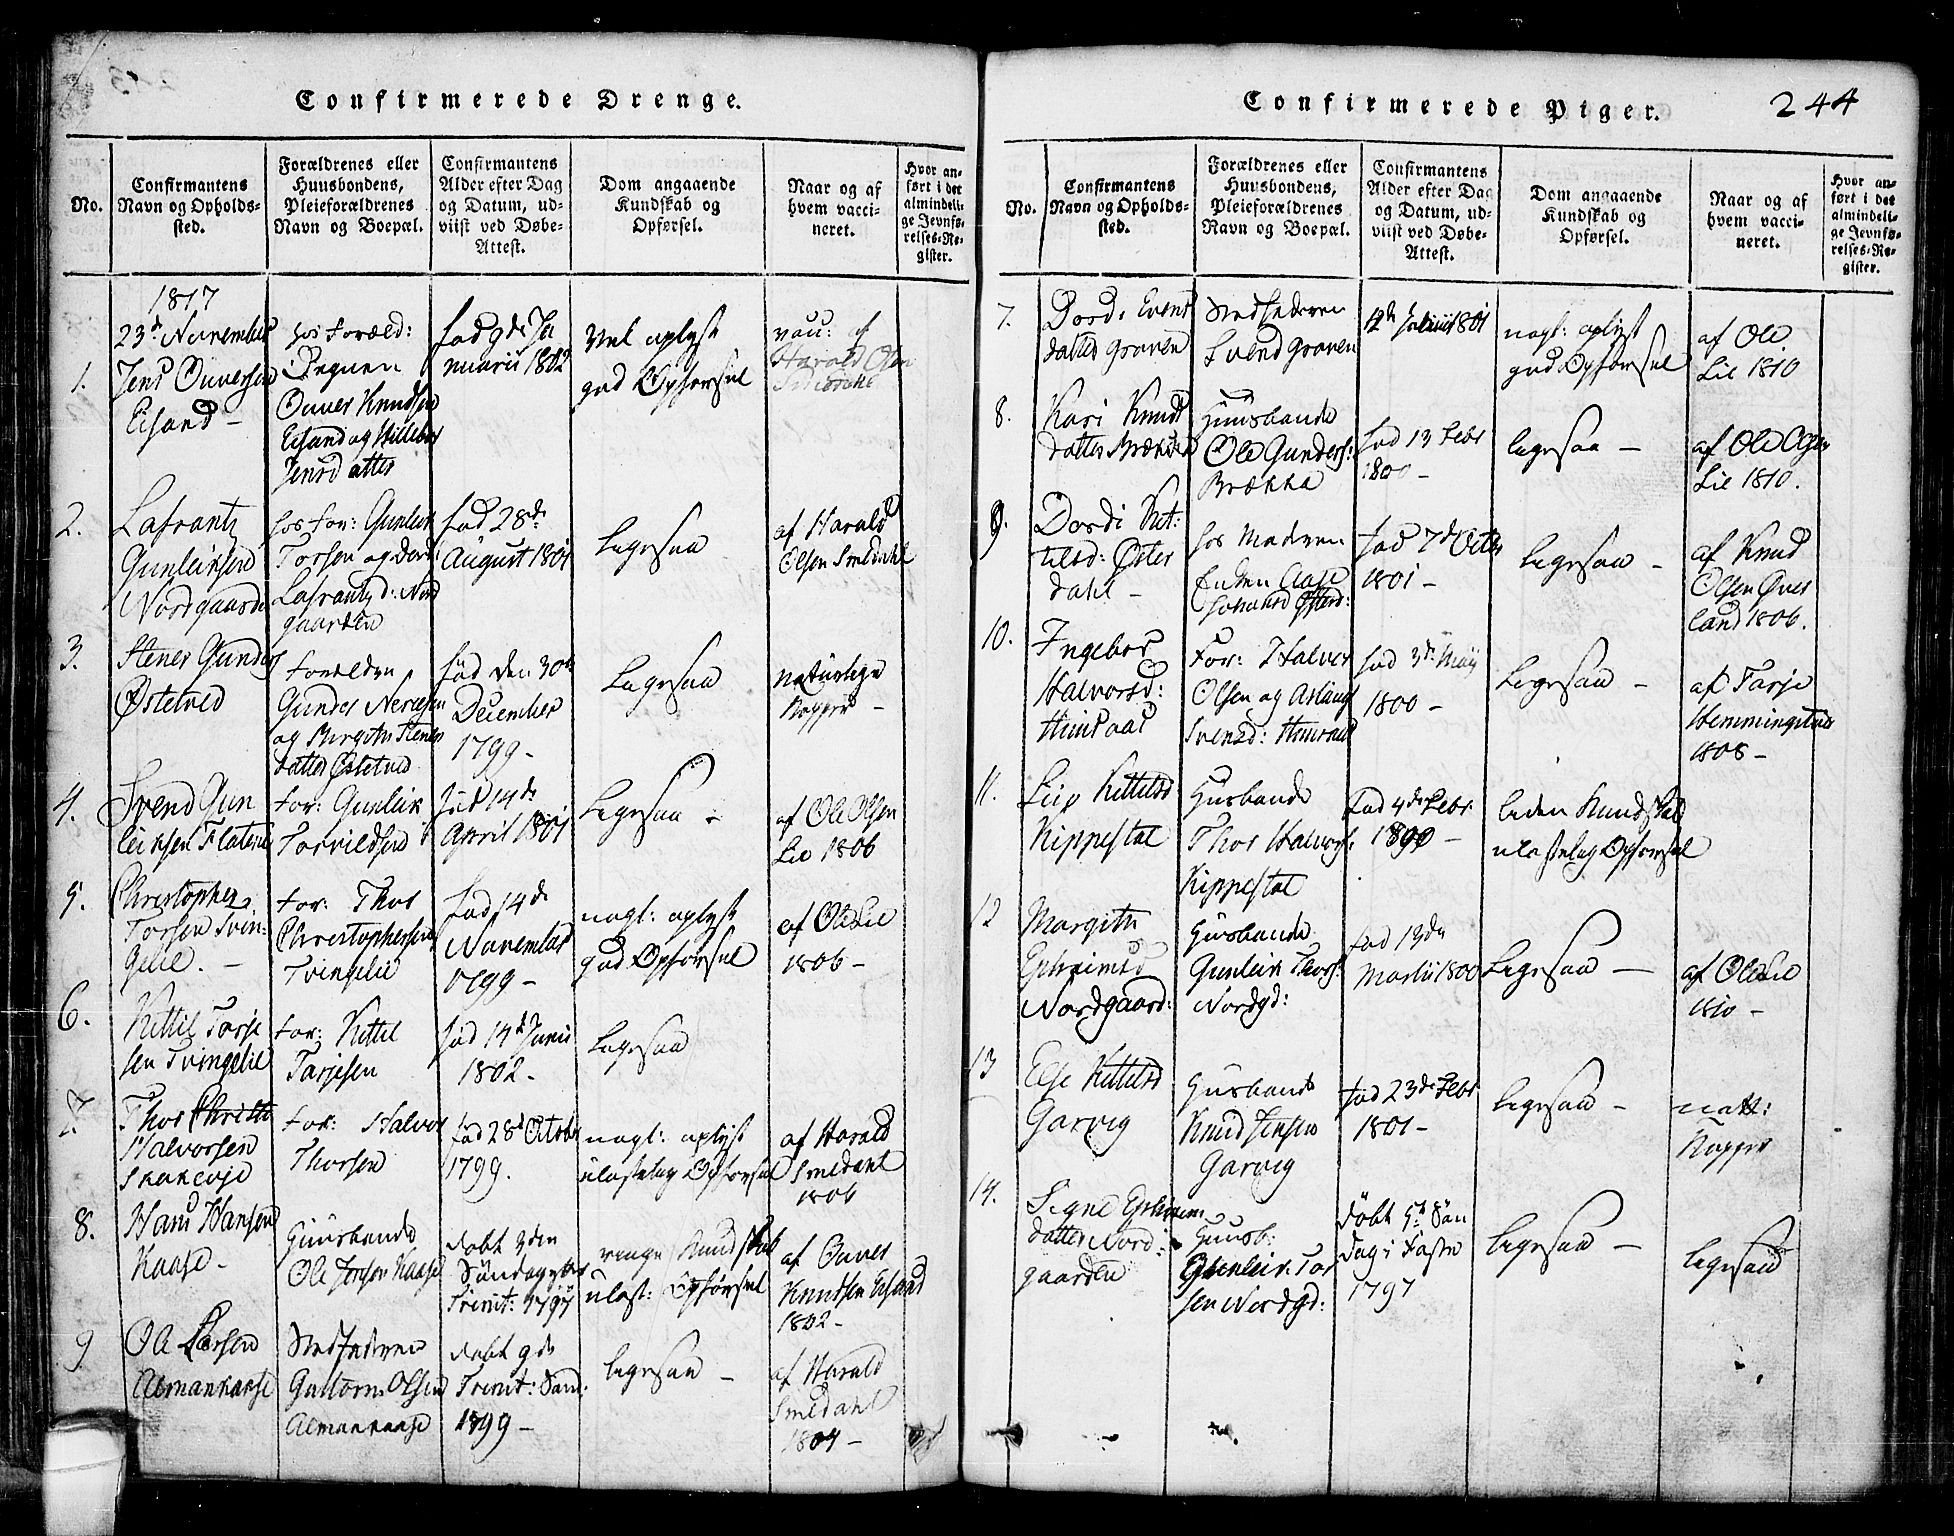 Confirmerede Drenge.
No.
Confirmantens
Navn og Opholds-
sted.
Forældrenes eller
Huusbondens,
Pleieforældrenes
Navn og Boepæl.
Confirmantens
Alder efter Dag
og Datum, ud-
viist ved Døbe-
Attest.
Dom angaaende
Kundskab og
Opførsel.
Naar og af
hvem vacci-
neret.
Hvor an-
ført i det
almindeli-
ge Jevnfø-
relses-Re-
gister.
1817
23de November
1.
Jens Ouversen
Eisand -
hos Foræld:
Ouver Knudsen
Eisand og
Jensdatter
fød 9de Ja
nuarii 1802
Vel oplyst
god Opførsel
vacc: af
Harald Olsen
Smedahl
2.
Lafrantz
Gunleiksen
Nordgaarden
hos For: Gunleik
Torsen og
Lafrantzd: Nord
gaarden
fød 28de
August 1801
ligesaa
af Harald
Olsen Smedahl
3.
Stener Gunders
Østetved
Forældre
Gunder
og Birgithe Steners
datter Østetved
fød den 30te
December
1799 -
Ligesaa
naturlige
Kopper -
4.
Svend Gun
leiksen Flaten
For: Gunleik
Torkildsen
fød 14de
April 1801
Ligesaa -
af Ole Olsen
Lie 1806
5.
Christopher
Torsen Tvin-
gelie. -
For: Thor
Christophersen
Tvingelie
fød 14de
November
1799 -
nogl: oplyst
god Opførsel
af Ole Lie
1806 -
6.
Kittil Tarje
sen Tvingelie
For: Kittil
Tarjesen
fød 14de Junii
1802 -
ligesaa
7.
Thor Christi
Halvorsen
For: Halvor
Thorsen
fød 28de October
1799.
nogl: oplyst
ulastelig Opførsel
af Harald
Smedahl
1806
8.
Hans Hansen
Kaase -
Huusbonde
Ole Jensen Kaase
døbt 3den
Søndag efter
Trinit: 1797
ringe Kundskab
ulast: Opførsel
af Ouver
Knudsen Eisand
1802 -
9
Ole Larsen
Almankaase
Stedfaderen
Guttorm Olsen
Almankaase
døbt 9de
Trinit: Sønd:
1799 -
ligesaa -
af Harald
Smedahl
1804 -
Confirmerede Piger.
244
No.
Confirmantens
Navn og Opholds-
sted.
Forældrenes eller
Huusbondens,
Pleieforældrenes
Navn og Boepæl.
Confirmantens
Alder efter Dag
og Datum, ud-
viist ved Døbe-
Attest.
Dom angaaende
Kundskab og
Opførsel.
Naar og af
hvem vacci-
neret.
Hvor an-
ført i det
almindeli-
ge Jevnfø-
relses-Re-
gister.
7.
Dordi Evens
datter Graven
Stedfaderen
Svend Graven
12te Julii 1801
nogl: oplyst
god Opførsel
af Ole
Lie 1810
8.
Kari Knuds
datter Brække
Huusbonde
Ole Gunders:
Brækka
fød 13 Febr
1800 -
ligesaa -
af Ole Olsen
Lie 1810.
9.
Dordi Kit:
tilsd: Øster
dahl -
hos Moderen
Enken Aase
Østerd:
fød 7de Octbr
1801 -
ligesaa -
af Knud
Olsen Over
land 1806.
10.
Ingebor
Halvorsd:
Heimdal
For: Halvor
Olsen og Aslaug
Svensd:
fød 3de Maij
1800 -
Ligesaa -
af Tarje
Hemmingstved
1808 -
11.
Kittilsd
Kippestal
Huusbonde
Thor Halvors:
Kippestal
fød 4de Febr
1800 -
liden Kundskab
ulastelig Opførsel
12
Margith
Ephraimsd
Nordgaard:
Huusbonde
Gunleik Thors:
Nordgd:
fød 13de
Martii 1800
Ligesaa -
af Ole Lie
1810 -
13
Else Kittilsd
Garvig
Huusbonde
Knud Jensen
Garvig
fød 23de Febr
1801 -
ligesaa -
natt:
Kopper
14.
Signe Ephraims
datter Nord:
gaarden
Huusb:
Gunleik Tor
sen Nordgd:
døbt 5te Søn
dag i Faste
1797
ligesaa -
ligesaa